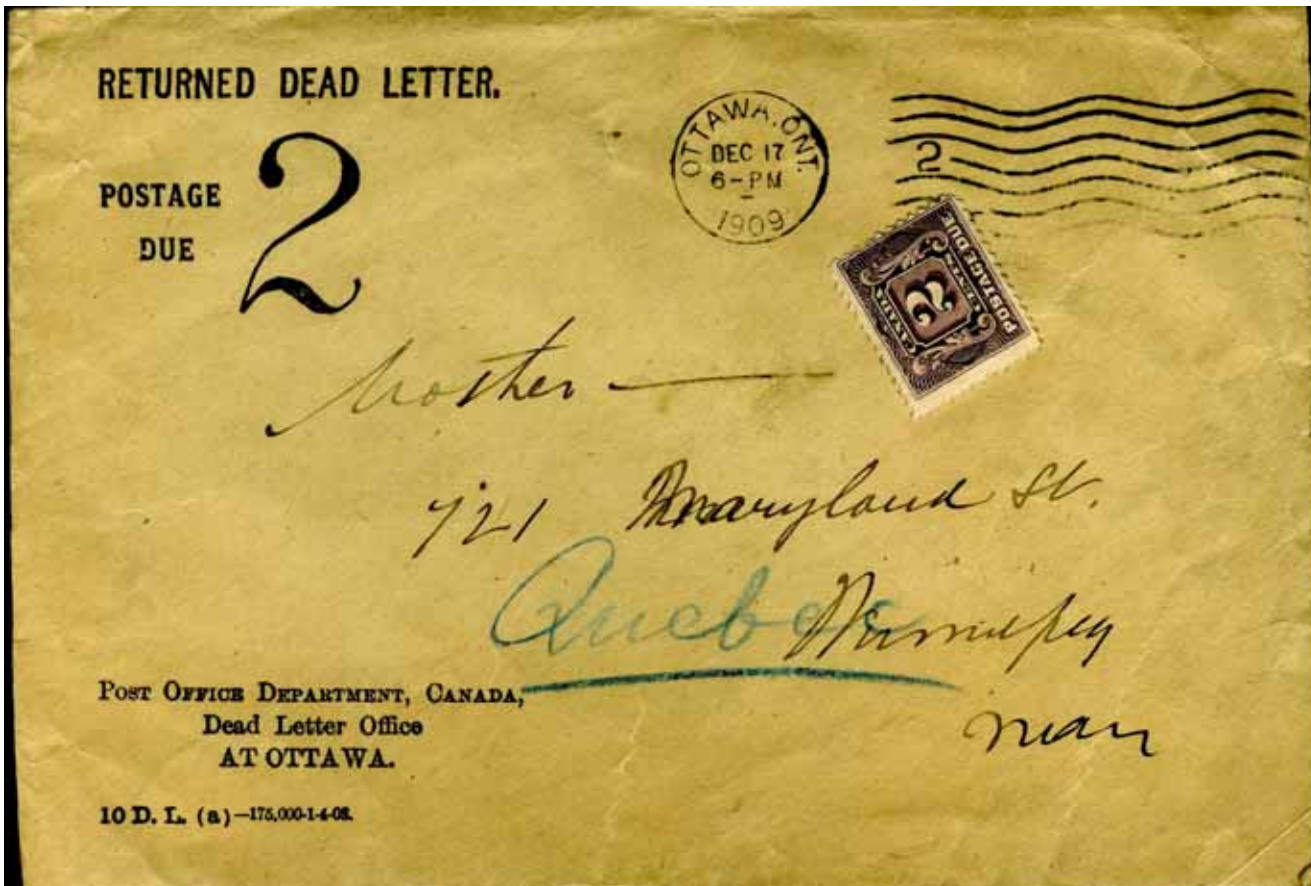 RETURNED DEAD LETTER.
POSTAGE
DUE
2
OTTAWA. ONT.
DEC 17
6-PM
1909
2
POSTAGE DUE
CENTS
2
CANADA
Mother
721 Maryland St.
Quebec
Winnipeg
Man
POST OFFICE DEPARTMENT, CANADA,
Dead Letter Office
AT OTTAWA.
10 D. L. (a)—175,000-1-4-08.